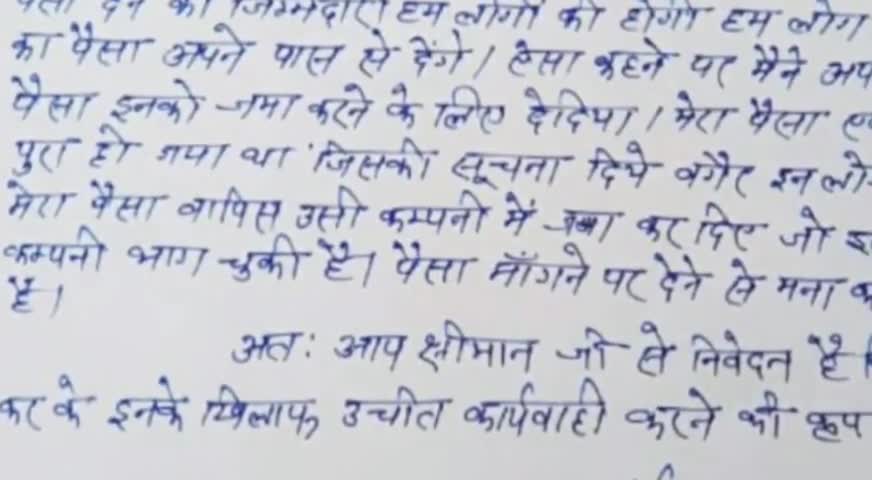 पैसा देने की जिम्मेदारी हम लोगों की होगी हम लोग
का पैसा अपने पास से देंगे। ऐसा कहने पर मैने अप
पैसा इनको जमा करने के लिए देदिया। मेरा पैसा
पुरा हो गया था जिसकी सूचना दिये बगैर इन लो
मेरा पैसा वापिस उसी कम्पनी में जमा कर दिए जो इ
कम्पनी भाग चुकी है। पैसा माँगने पर देने से मना क
है।
अतः आप श्रीमान जी से निवेदन है कि
कर के इनके खिलाफ उचीत कार्यवाही करने की कृप